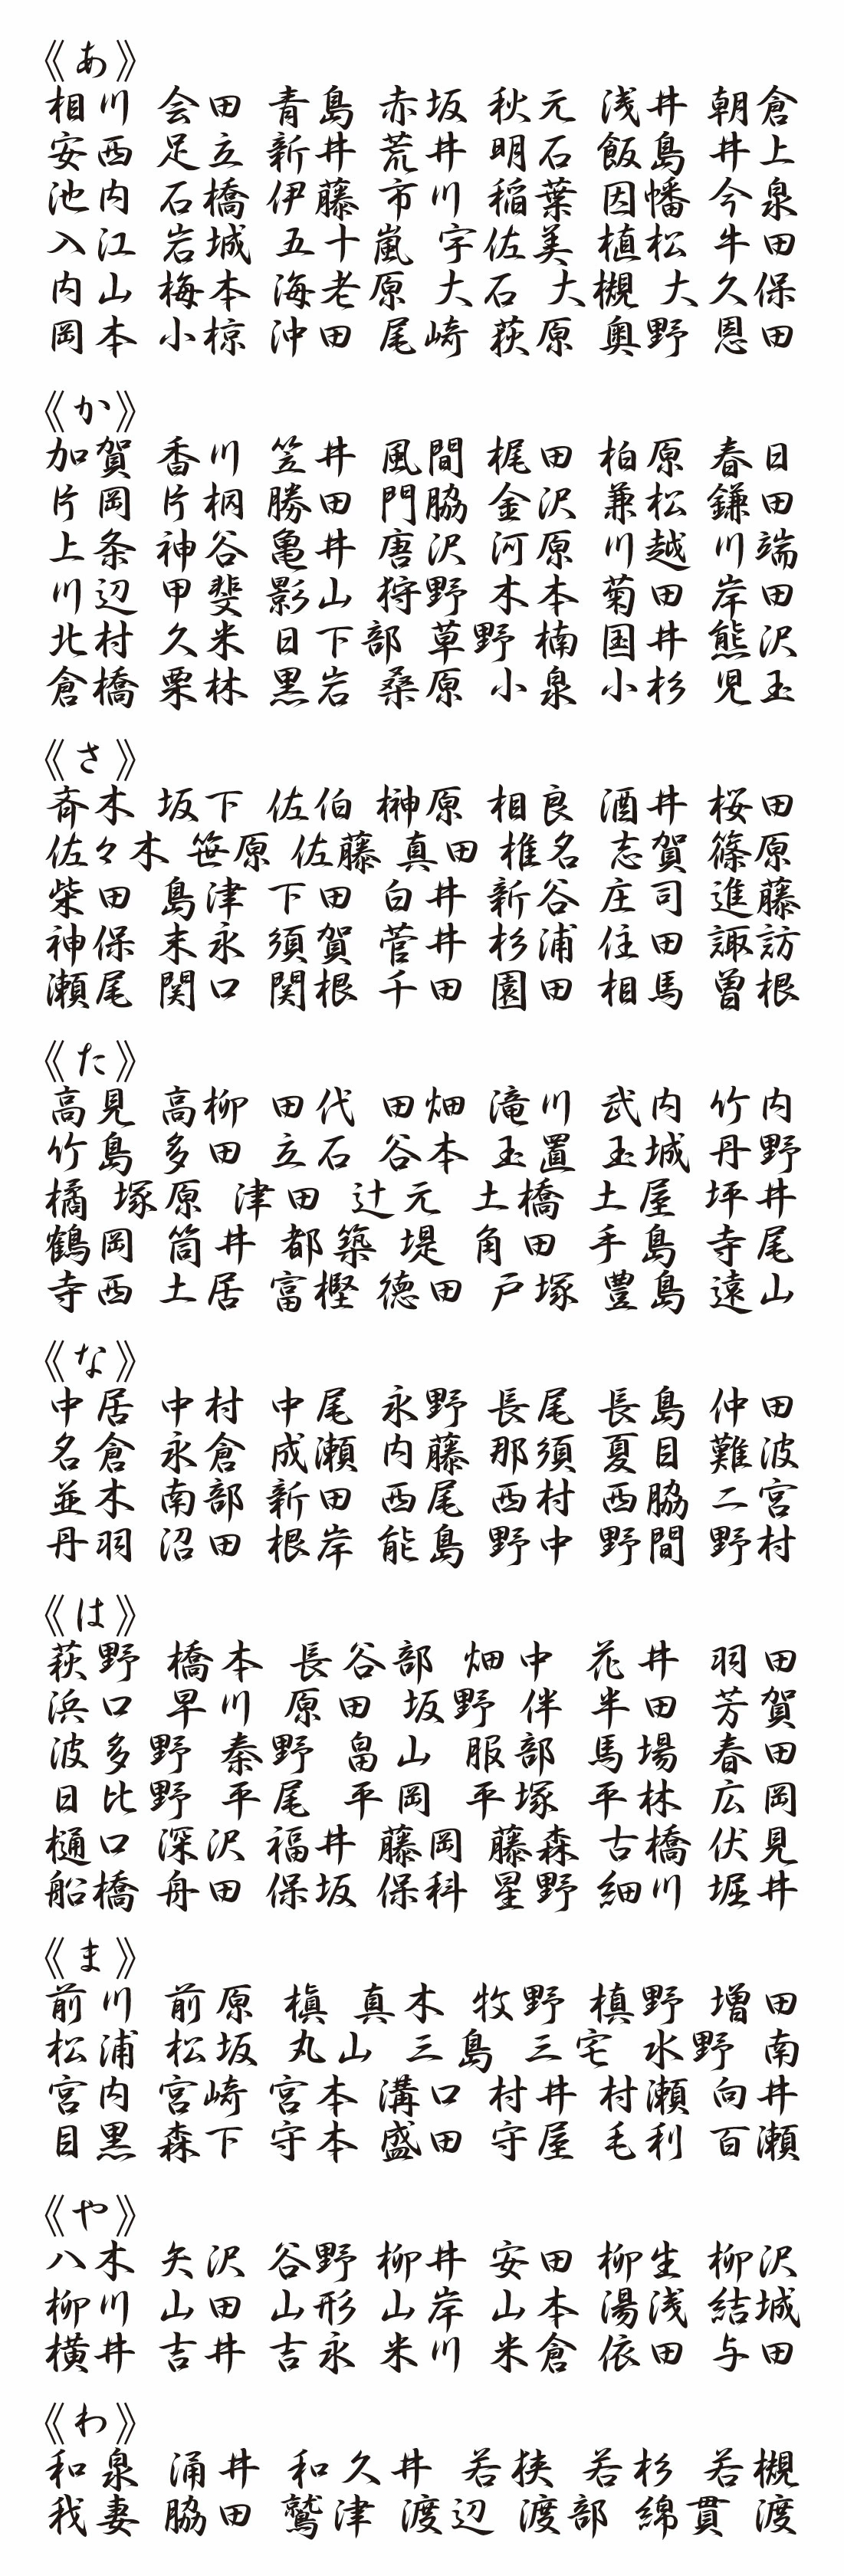 《あ》
相川 会田 青島 赤坂 秋元 浅井 朝倉
安西 足立 新井 荒井 明石 飯島 井上
池内 石橋 伊藤 市川 稲葉 因幡 今泉
入江 岩城 五十嵐 宇佐美 植松 牛田
内山 梅本 海老原 大石 大槻 大久保
岡本 小椋 沖田 尾崎 荻原 奥野 恩田
《か》
加賀 香川 笠井 風間 梶田 柏原 春日
片岡 片柄 勝田 門脇 金沢 兼松 鎌田
上条 神谷 亀井 唐沢 河原 川越 川端
川辺 甲斐 影山 狩野 木本 菊田 岸田
北村 久米 日下部 草野 楠 国井 熊沢
倉橋 栗林 黒岩 桑原 小泉 小杉 児玉
《さ》
斉木 坂下 佐伯 榊原 相良 酒井 桜田
佐々木 笹原 佐藤 真田 椎名 志賀 篠原
柴田 島津 下田 白井 新谷 庄司 進藤
神保 末永 須賀 菅井 杉浦 住田 諏訪
瀬尾 関口 関根 千田 園田 相馬 曽根
《た》
高見 高柳 田代 田畑 滝川 武内 竹内
竹島 多田 立石 谷本 玉置 玉城 丹野
橘 塚原 津田 辻元 土橋 土屋 坪井
鶴岡 筒井 都築 堤 角田 手島 寺尾
寺西 土居 富樫 徳田 戸塚 豊島 遠山
《な》
中居 中村 中尾 永野 長尾 長島 仲田
名倉 永倉 成瀬 内藤 那須 夏目 難波
並木 南部 新田 西尾 西村 西脇 二宮
丹羽 沼田 根岸 能島 野中 野間 野村
《は》
萩野 橋本 長谷部 畑中 花井 羽田
浜口 早川 原田 坂野 伴 半田 芳賀
波多野 秦野 畠山 服部 馬場 春田
日比野 平尾 平岡 平塚 平林 広岡
樋口 深沢 福井 藤岡 藤森 古橋 伏見
船橋 舟田 保坂 保科 星野 細川 堀井
《ま》
前川 前原 槇 真木 牧野 槙野 増田
松浦 松坂 丸山 三島 三宅 水野 南
宮内 宮崎 宮本 溝口 村井 村瀬 向井
目黒 森下 守本 盛田 守屋 毛利 百瀬
《や》
八木 矢沢 谷野 柳井 安田 柳生 柳沢
柳川 山田 山形 山岸 山本 湯浅 結城
横井 吉井 吉永 米川 米倉 依田 与田
《わ》
和泉 涌井 和久井 若狭 若杉 若槻
我妻 脇田 鷲津 渡辺 渡部 綿貫 渡